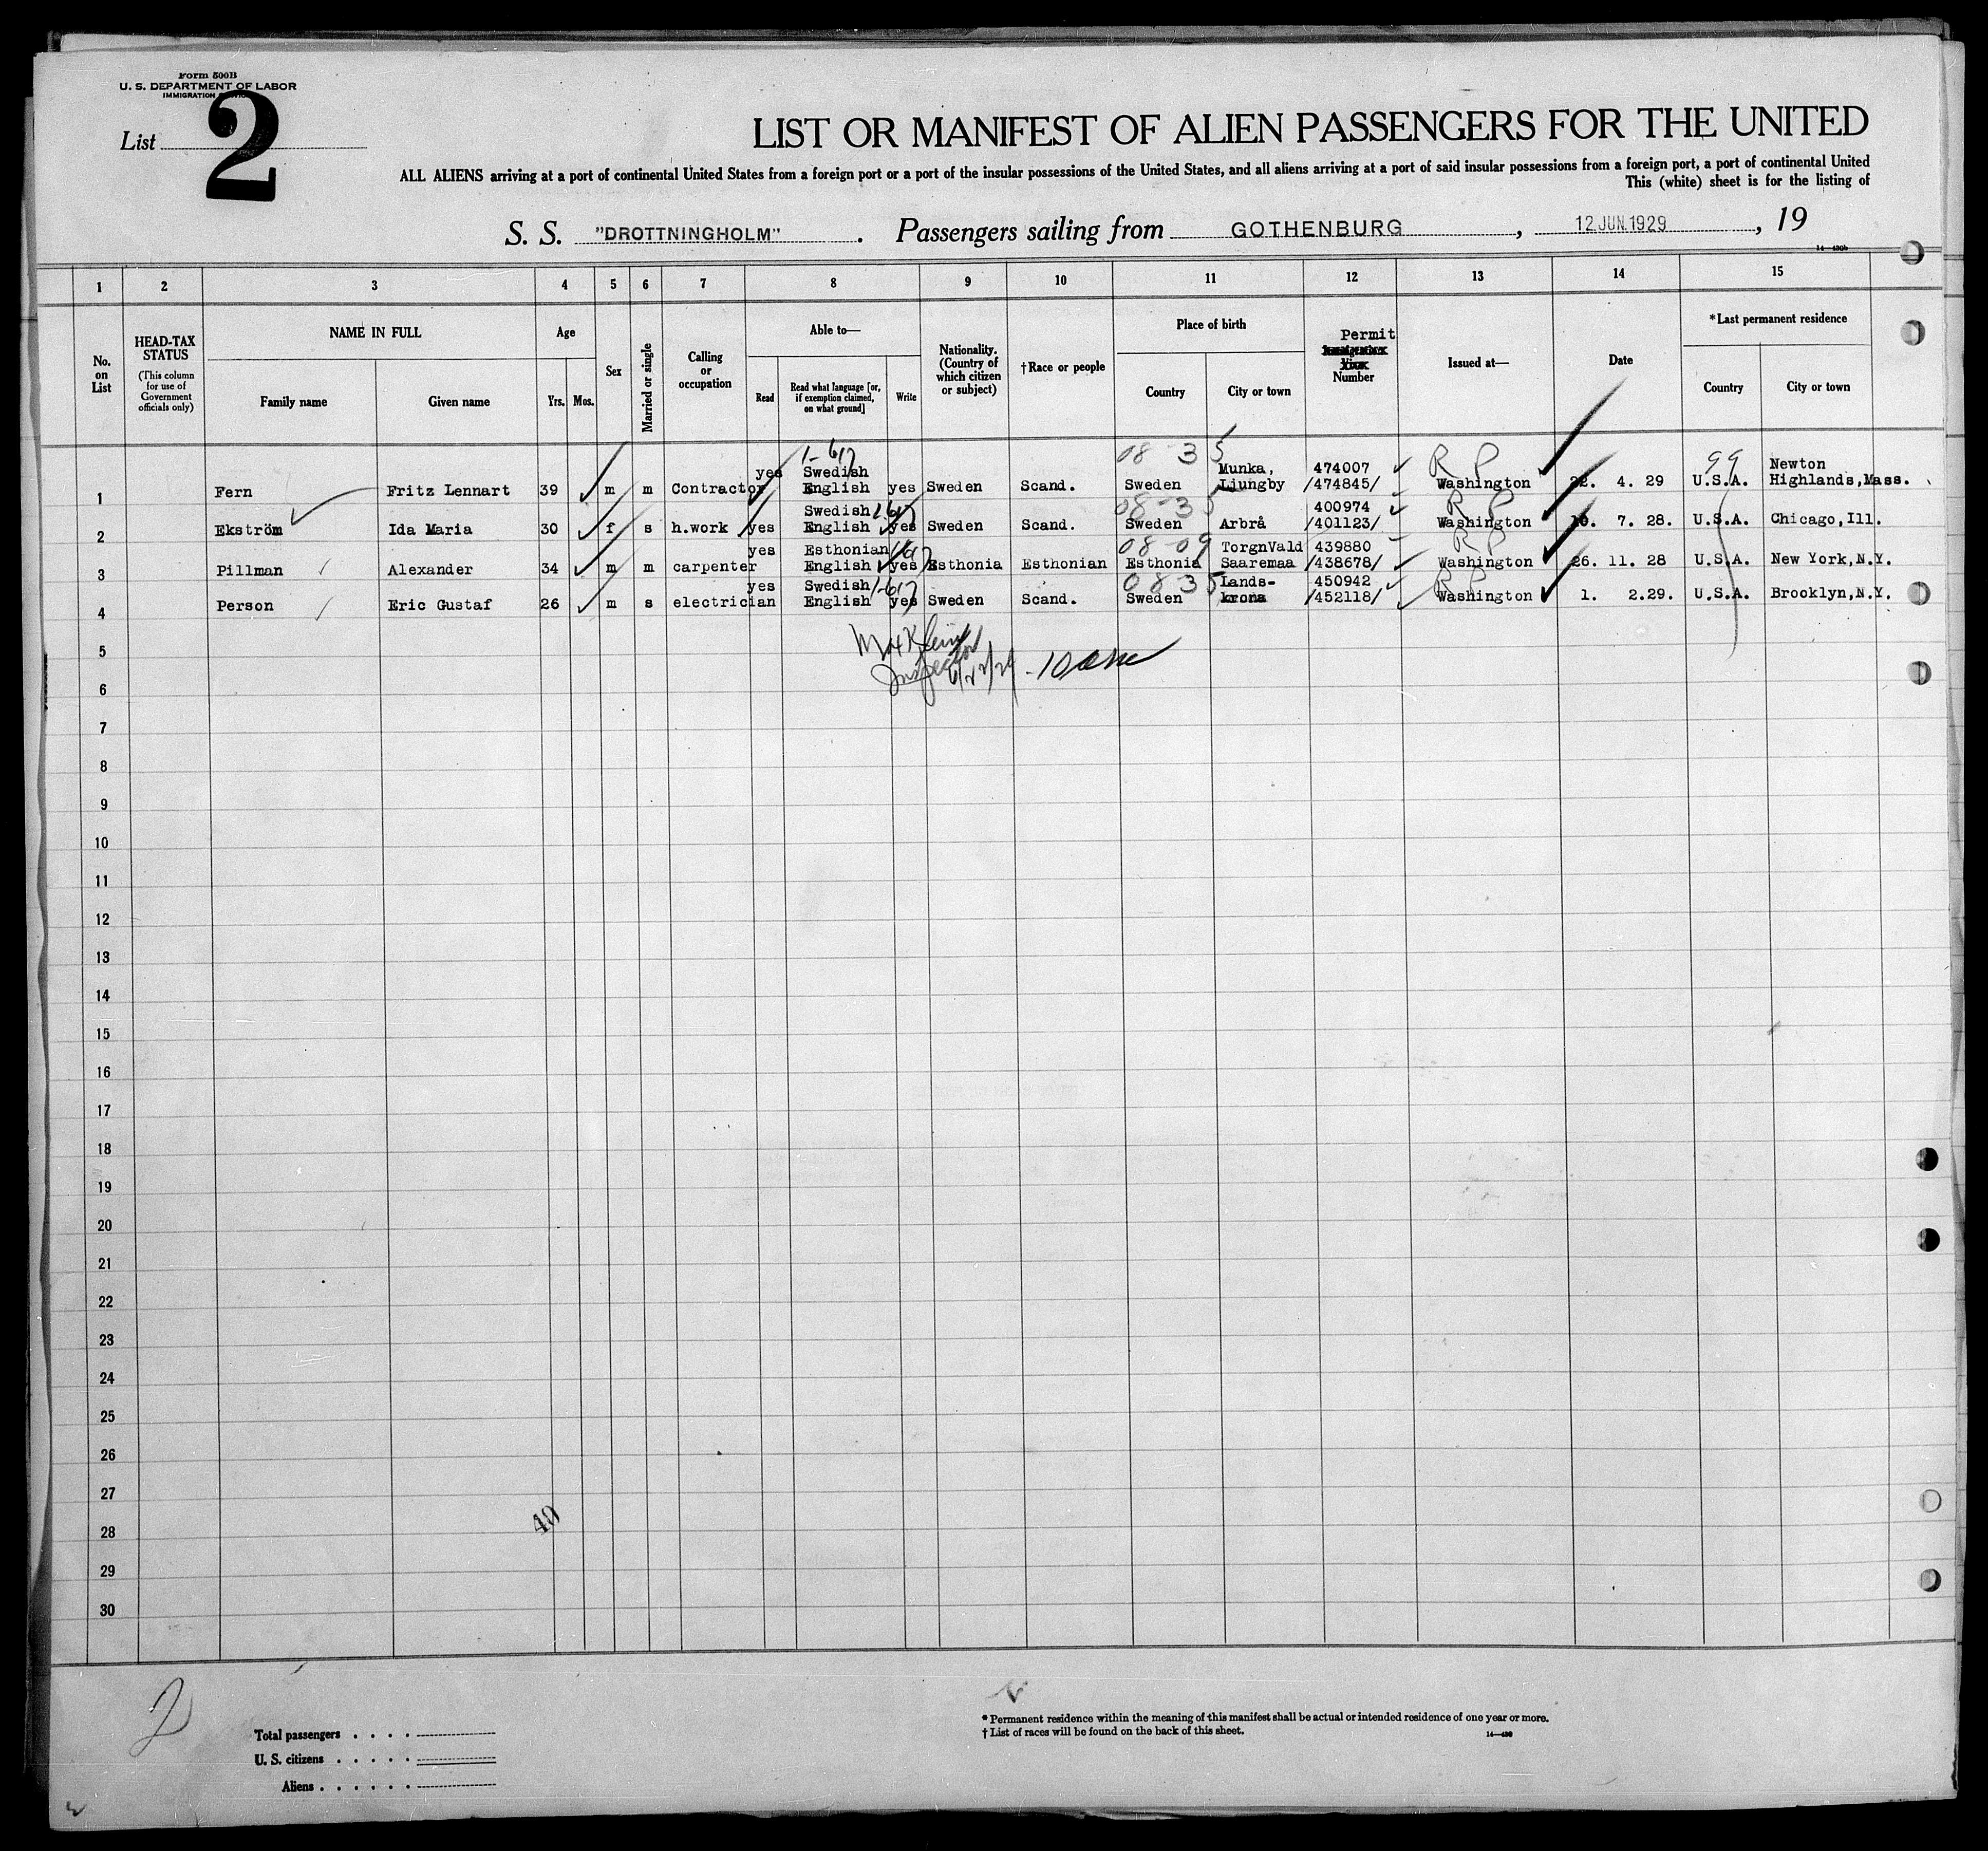 Form 500B
U. S. DEPARTMENT OF LABOR
IMMIGRATION
List 2
LIST OR MANIFEST OF ALIEN PASSENGERS FOR THE UNITED
ALL ALIENS arriving at a port of continental United States from a foreign port or a port of the insular possessions of the United States, and all aliens arriving at a port of said insular possessions from a foreign port, a port of continental United
This (white) sheet is for the listing of
S. S. "DROTTNINGHOLM". Passengers sailing from GOTHENBURG, 12 JUN. 1929, 19
14—430b
1 2 3 4 5 6 7 8 9 10 11 12 13 14 15
No. on List
HEAD-TAX STATUS (This column for use of Government officials only)
NAME IN FULL
Family name
Given name
Age
Yrs. Mos.
Sex
Married or single
Calling or occupation
Able to—
Read
Read what language [or, if exemption claimed, on what ground]
Write
Nationality. (Country of which citizen or subject)
†Race or people
Place of birth
Country
City or town
Permit
Number
Issued at—
Date
*Last permanent residence
Country
City or town
1-617 08 35 R P 99
yes Swedish Munka, 474007 Newton
1 Fern Fritz Lennart 39 m m Contractor English yes Sweden Scand. Sweden Ljungby /474845/ Washington 22. 4. 29 U.S.A. Highlands,Mass.
Swedish 1-617 08-35 400974 R P
2 Ekström Ida Maria 30 f s h.work yes English yes Sweden Scand. Sweden Arbrå /401123/ Washington 10. 7. 28. U.S.A. Chicago,Ill.
yes Esthonian 08-09 TorgnVald 439880 R P
3 Pillman Alexander 34 m m carpenter English yes Esthonia Esthonian Esthonia Saaremaa /438678/ Washington 26. 11. 28 U.S.A. New York,N.Y.
yes Swedish 1-617 08 35 Lands- 450942 R P
4 Person Eric Gustaf 26 m s electrician English yes Sweden Scand. Sweden krona /452118/ Washington 1. 2.29. U.S.A. Brooklyn,N.Y.
5
Inspector
6
6/22/29
7
8
9
10
11
12
13
14
15
16
17
18
19
20
21
22
23
24
25
26
27
28
40
29
30
2
Total passengers
U. S. citizens
Aliens
* Permanent residence within the meaning of this manifest shall be actual or intended residence of one year or more.
† List of races will be found on the back of this sheet.
14—430